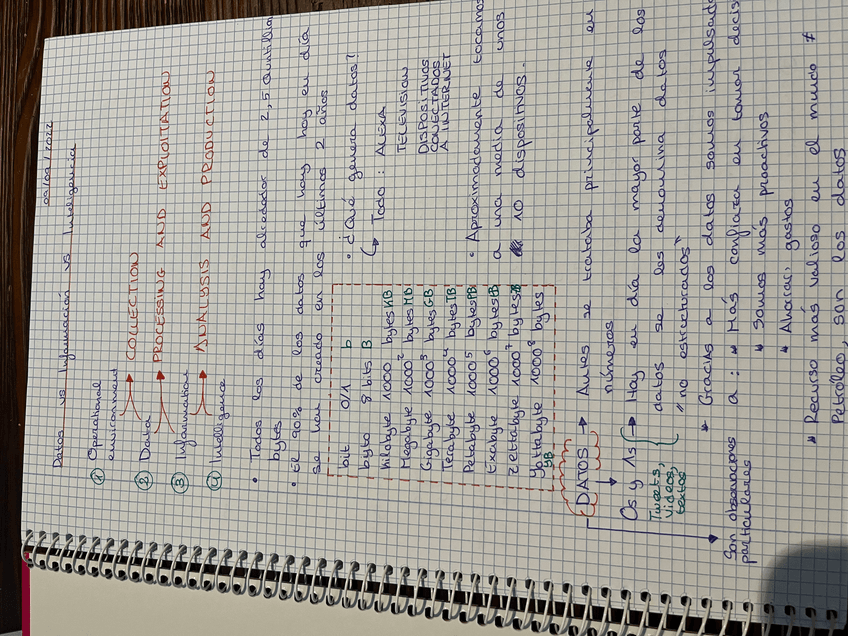 09/09/2022
Datos vs Información vs Inteligencia
① Operational
environment
COLLECTION
② Data
PROCESSING AND EXPLOITATION
③ Information
ANALYSIS AND PRODUCTION
④ Intelligence
• Todos los días hay alrededor de 2,5 Quintillo
bytes
• El 90% de los datos que hay hoy en día
se han creado en los últimos 2 años
bit 0/1 b
byte 8 bits B
kilobyte 1000 bytes KB
Megabyte 1000² bytes MB
Gigabyte 1000³ bytes GB
Terabyte 1000⁴ bytes TB
Petabyte 1000⁵ bytes PB
Exabyte 1000⁶ bytes EB
Zettabyte 1000⁷ bytes ZB
Yottabyte 1000⁸ bytes
YB
• ¿Qué genera datos?
↳ Todo: ALEXA
TELEVISION
DISPOSITIVOS
CONECTADOS
A INTERNET
• Aproximadamente tocamos
a una media de unos
10 dispositivos.
DATOS → Antes se trataba principalmente en
números
0s y 1s → Hay en día la mayor parte de los
datos se les denomina datos
"no estructurados"
Tweets,
videos,
textos
Son observaciones
particulares
* Gracias a los datos somos impulsado
a: * Más confianza en tomar decis
* Somos más proactivos
* Ahorrar gastos
* Recurso más valioso en el mundo ≠
Petróleo, son los datos